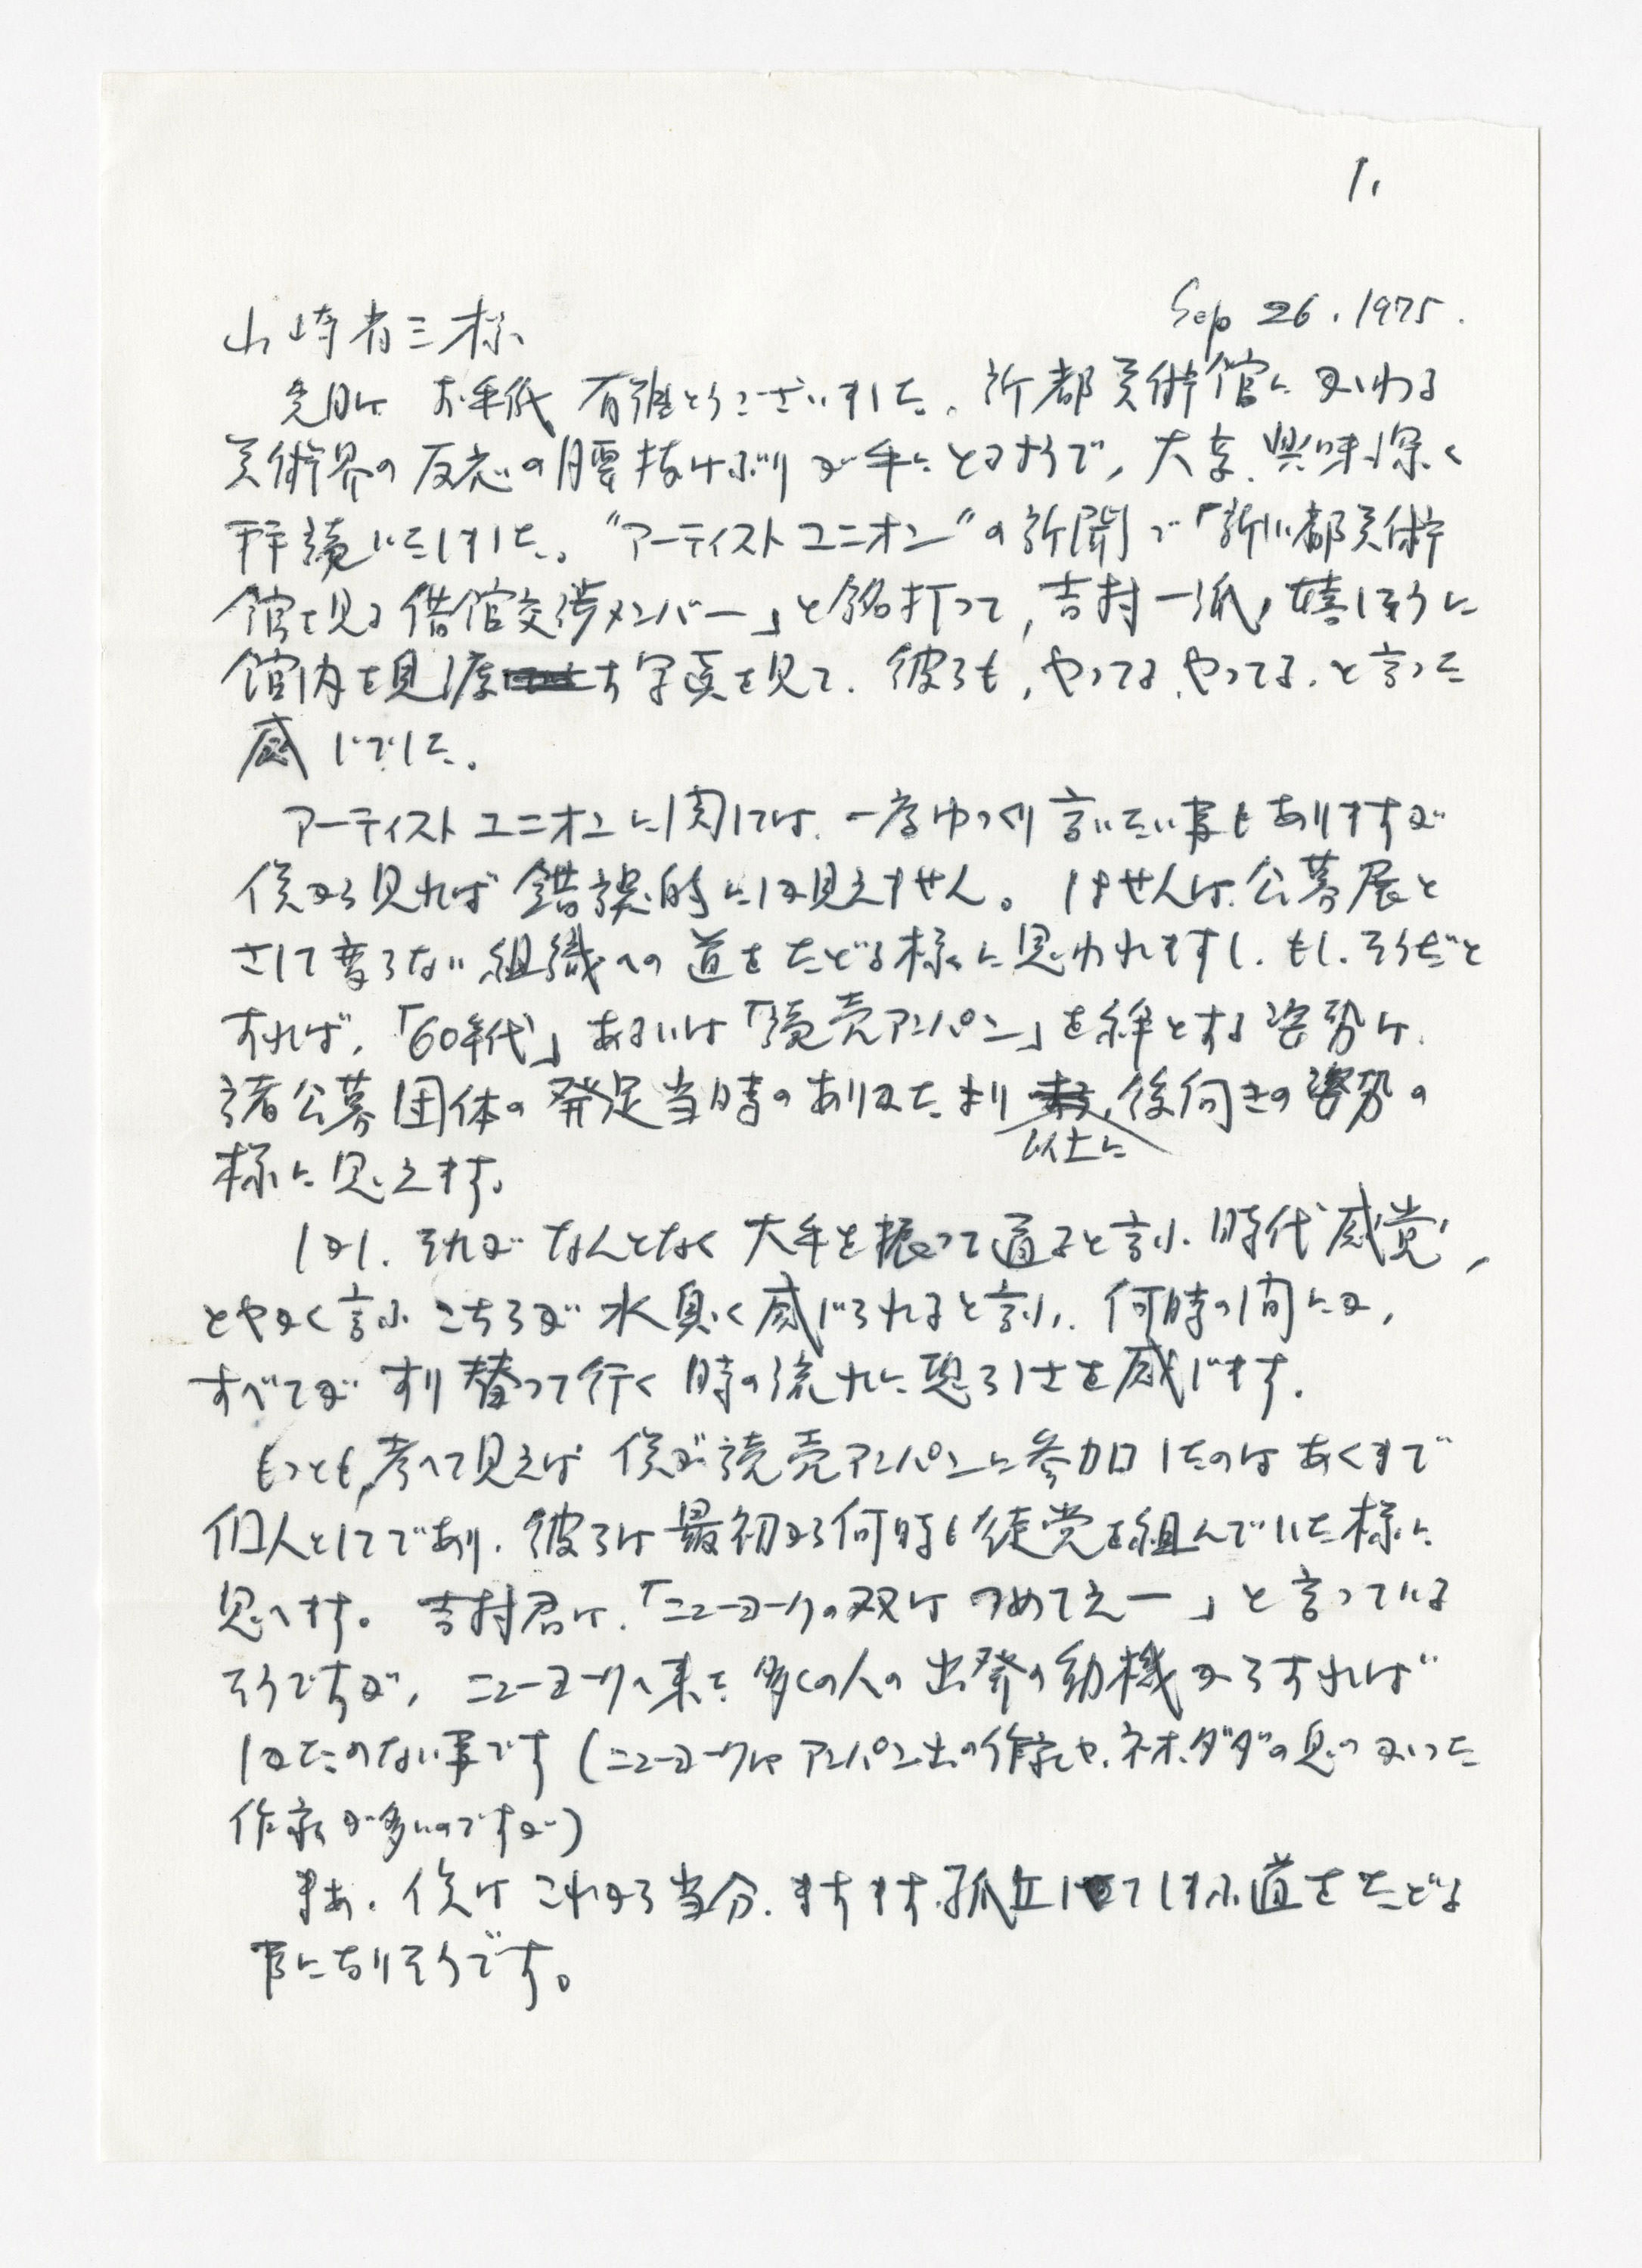 1.
Sep 26. 1975.
山崎省三様
先日は お手紙 有難とうございました。新都美術館にかかわる
美術界の反応の腰抜けぶりが手にとるようで, 大変. 興味深く
拝読いたしました。"アーティストユニオン"の新聞で「新しい都美術
館を見る借館交渉メンバー」と銘打って, 吉村一派, 嬉しそうに
館内を見渡す写真を見て. 彼らも, やってる, やってる. と言った
感じでした。
アーティストユニオンに関しては. 一度ゆっくり言いたい事もありますが
僕から見れば 錯誤的にしか見えません。しょせんは. 公募展と
さして変らない組織への道をたどる様に思われますし. もし. そうだと
すれば, 「60年代」あるいは「読売アンパン」を絆とする姿勢は.
諸公募団体の発足当時のありかたより以上に後向きの姿勢の
様に思えます。
しかし. それがなんとなく大手を振って通ると言ふ. 時代感覚,
とやかく言ふこちらが水臭く感じられると言ふ. 何時の間にか,
すべてがすり替って行く時の流れに恐ろしさを感じます.
もっとも, 考へて見えば 僕が読売アンパンに参加したのはあくまで
個人としてであり. 彼らは最初から何時も徒党を組んでいた様に
思へます。吉村君は. 「ニューヨークの奴は つめてえー」と言っている
そうですが, ニューヨークへ来た多くの人の出発の動機からすれば
しかたのない事です (ニューヨークはアンパン出の作家や, ネオ.ダダの息のかかった
作家が多いのですが)
まあ. 僕はこれから当分. ますます. 孤立してしまふ道をたどる
事になりそうです。